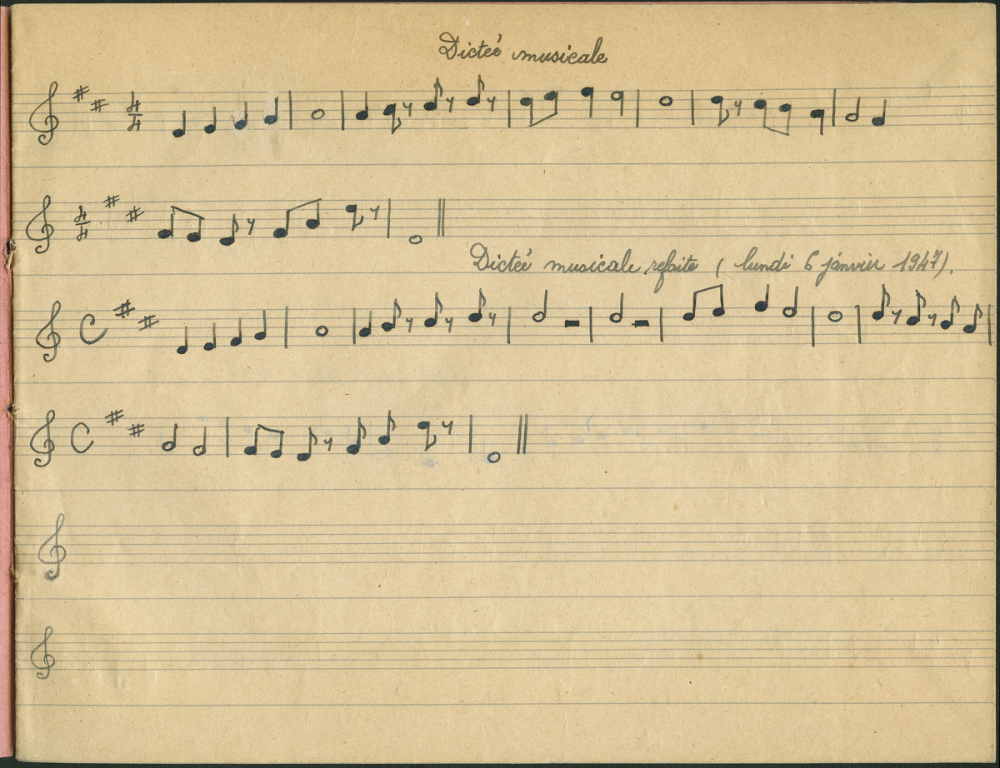 Dicteé musicale
4
4
4
4
Dicteé musicale refaite ( lundi 6 janvier 1947).
C
C